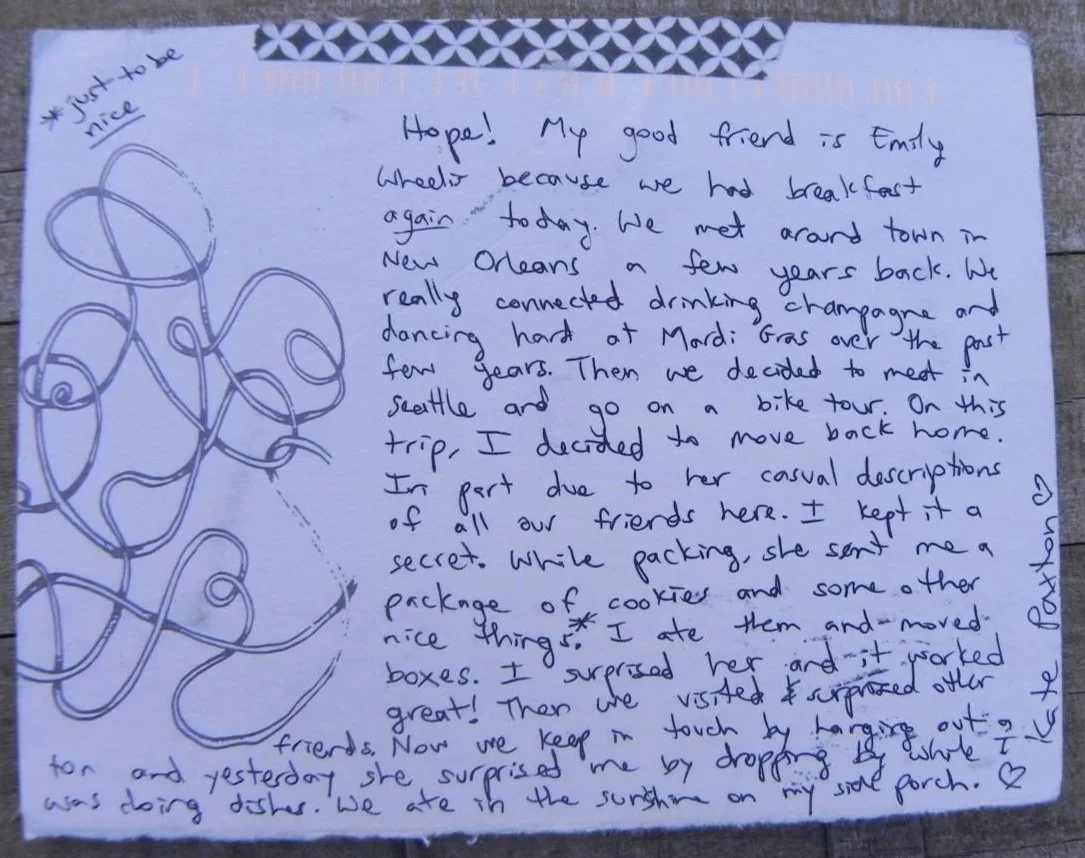 * just to be
nice
Hope! My good friend is Emily
because we had breakfast
again today. We met around town in
New Orleans a few years back. We
really connected drinking champagne and
dancing hard at Mardi Gras over the past
few years. Then we decided to meet in
Seattle and go on a bike tour. On this
trip, I decided to move back home.
In part due to her casual descriptions
of all our friends here. I kept it a
secret. While packing, she sent me a
package of cookies and some other
nice things.* I ate them and moved
boxes. I surprised her and it worked
great! Then we visited & surprised other
friends. Now we keep in touch by hanging out a
ton and yesterday she surprised me by dropping by while I
was doing dishes. We ate in the sunshine on my side porch. ♡
Kate Paxton ♡